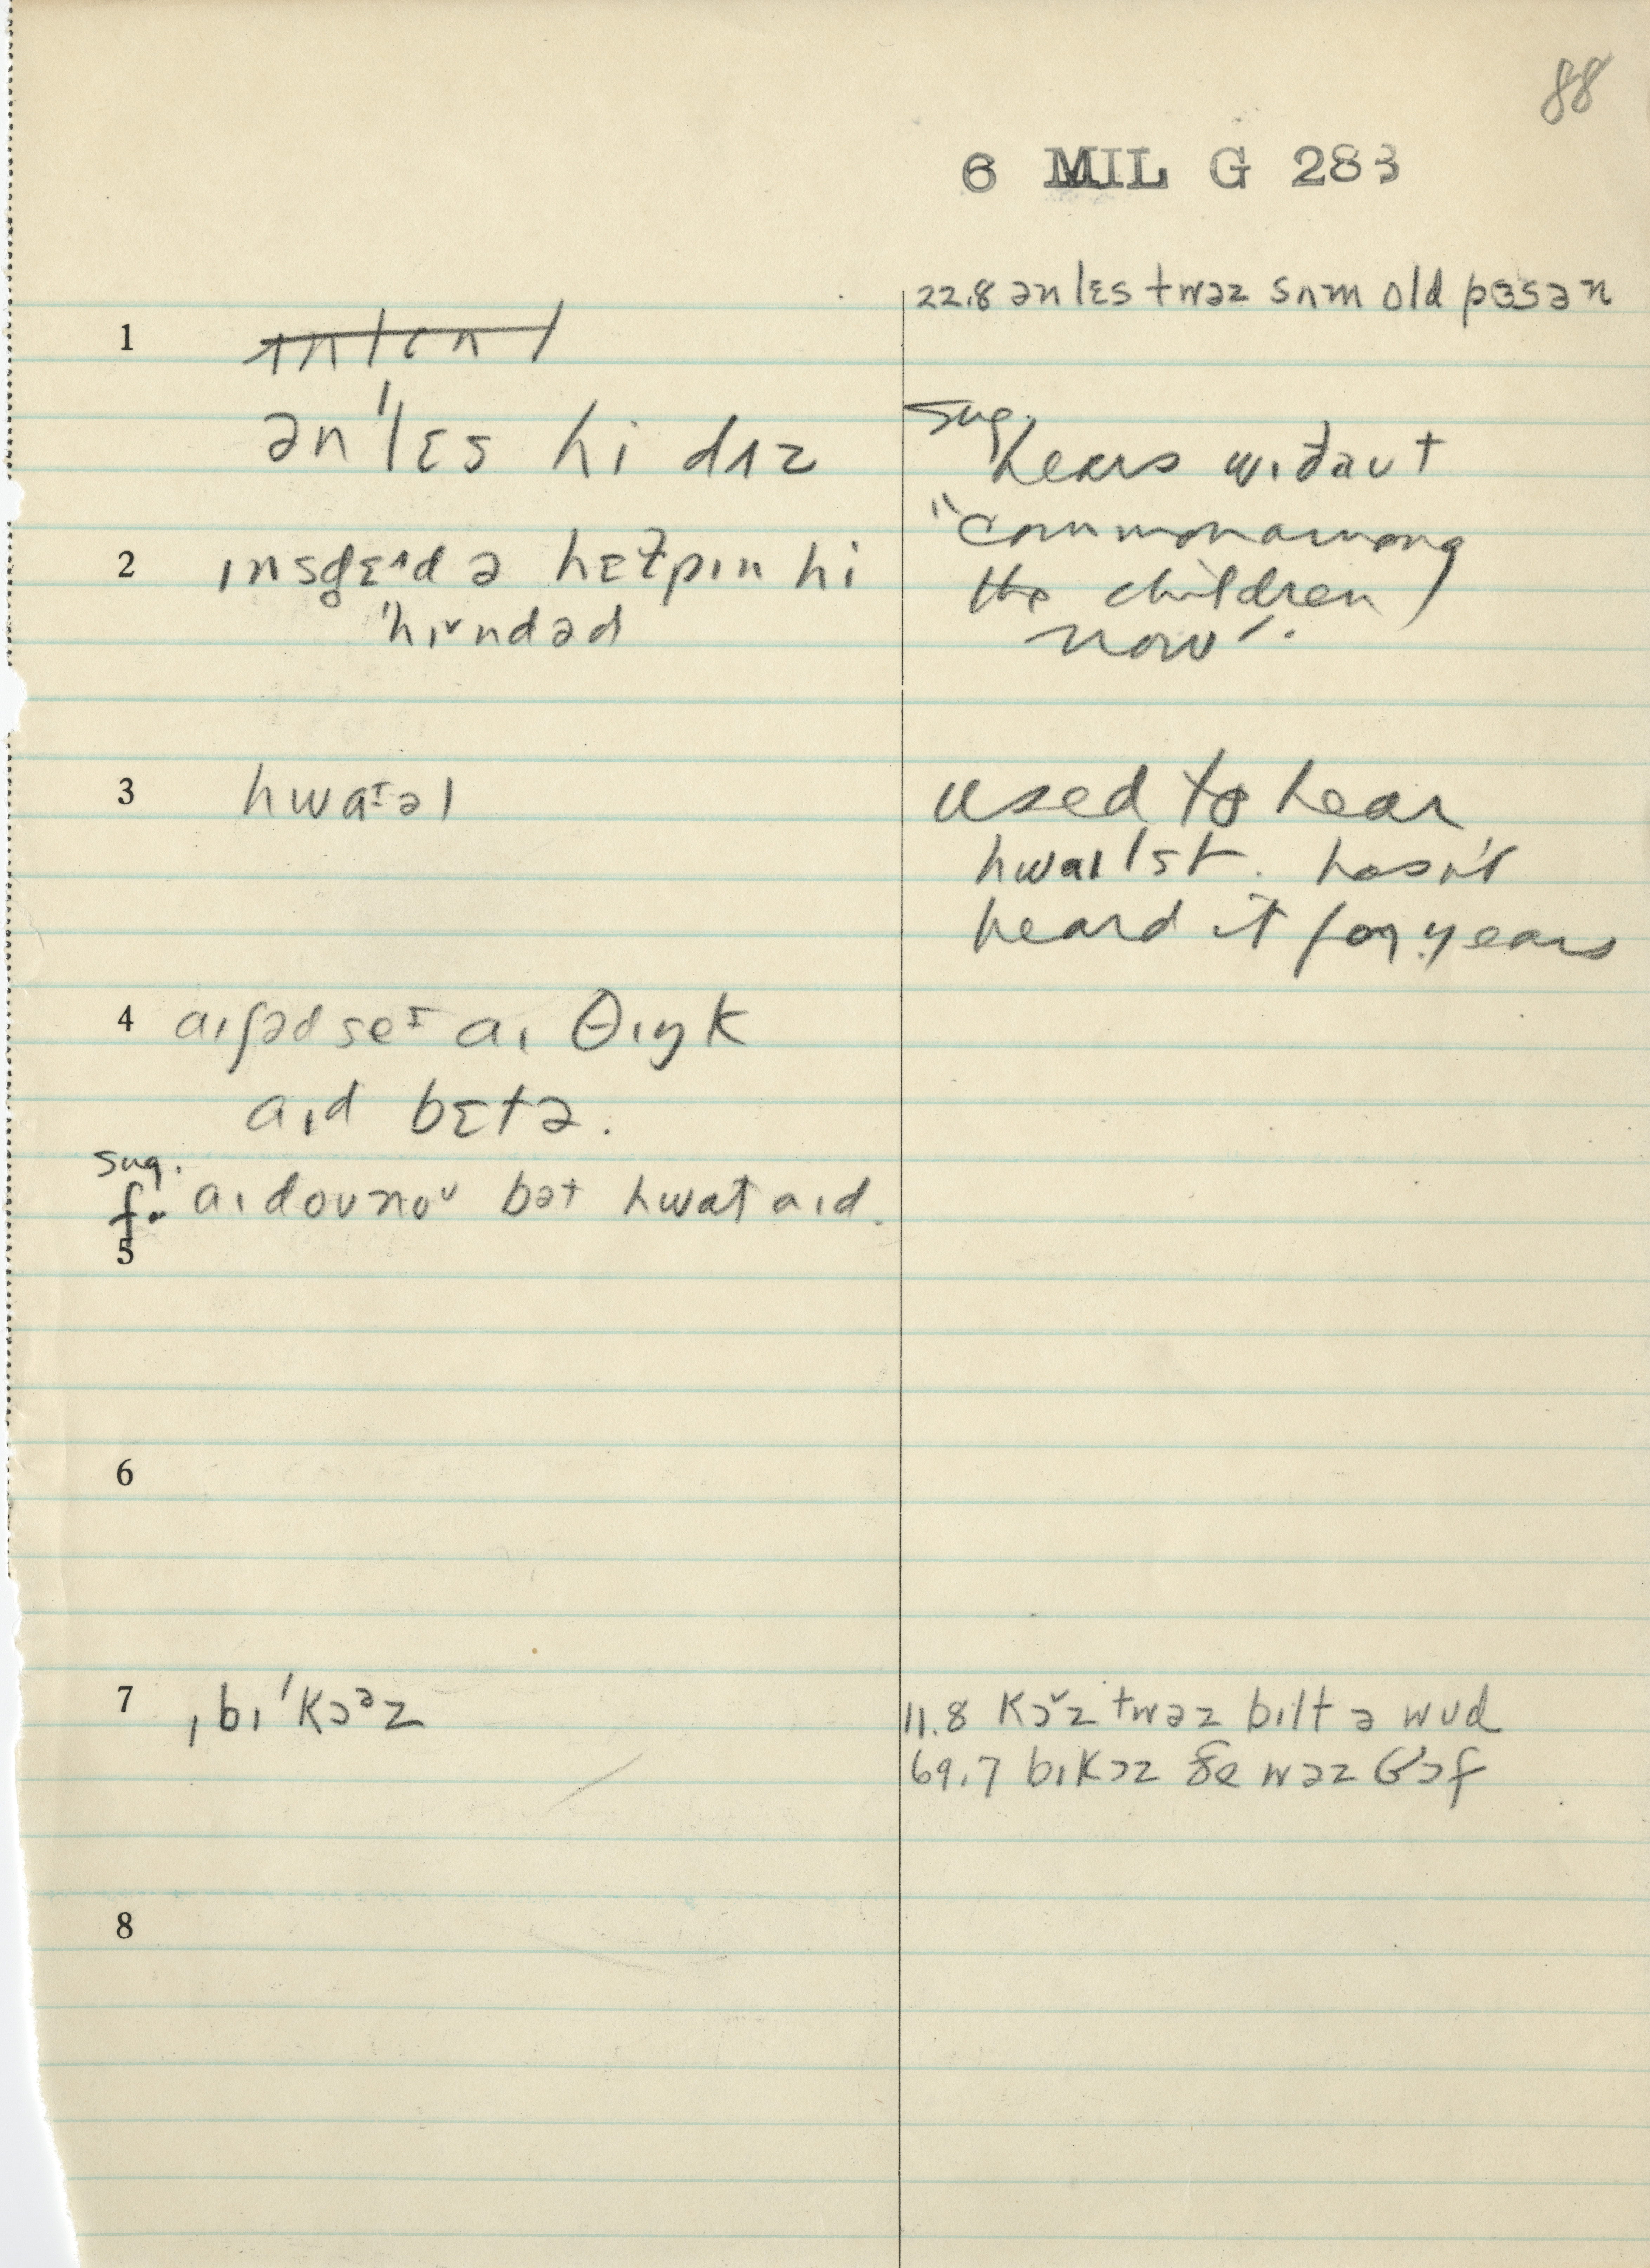 88
6 MIL G 283
22.8 ənlɛs twəz sʌm old pɜsən
1
ən'lɛs hi dʌz
sug.
hears wɪðaut
2 ɪnsd̥ɛɪd ə hɛɫpɪn hi
'hɪ˅ndəd
"common among
the children
now".
3 hwaɪəl
used to hear
hwaɪlst. hasn't
heard it for years
4 aɪʃəd seɪ aɪ θɪŋk
aɪd bɛtə.
sug.
f. aɪdoʊnoʊ bət hwat aɪd.
5
6
7 ˌbɪ'kɔᵊz
11.8 kɔ˅z twəz bɪlt ə wud
69.7 bɪkɔz ðe wəz
8